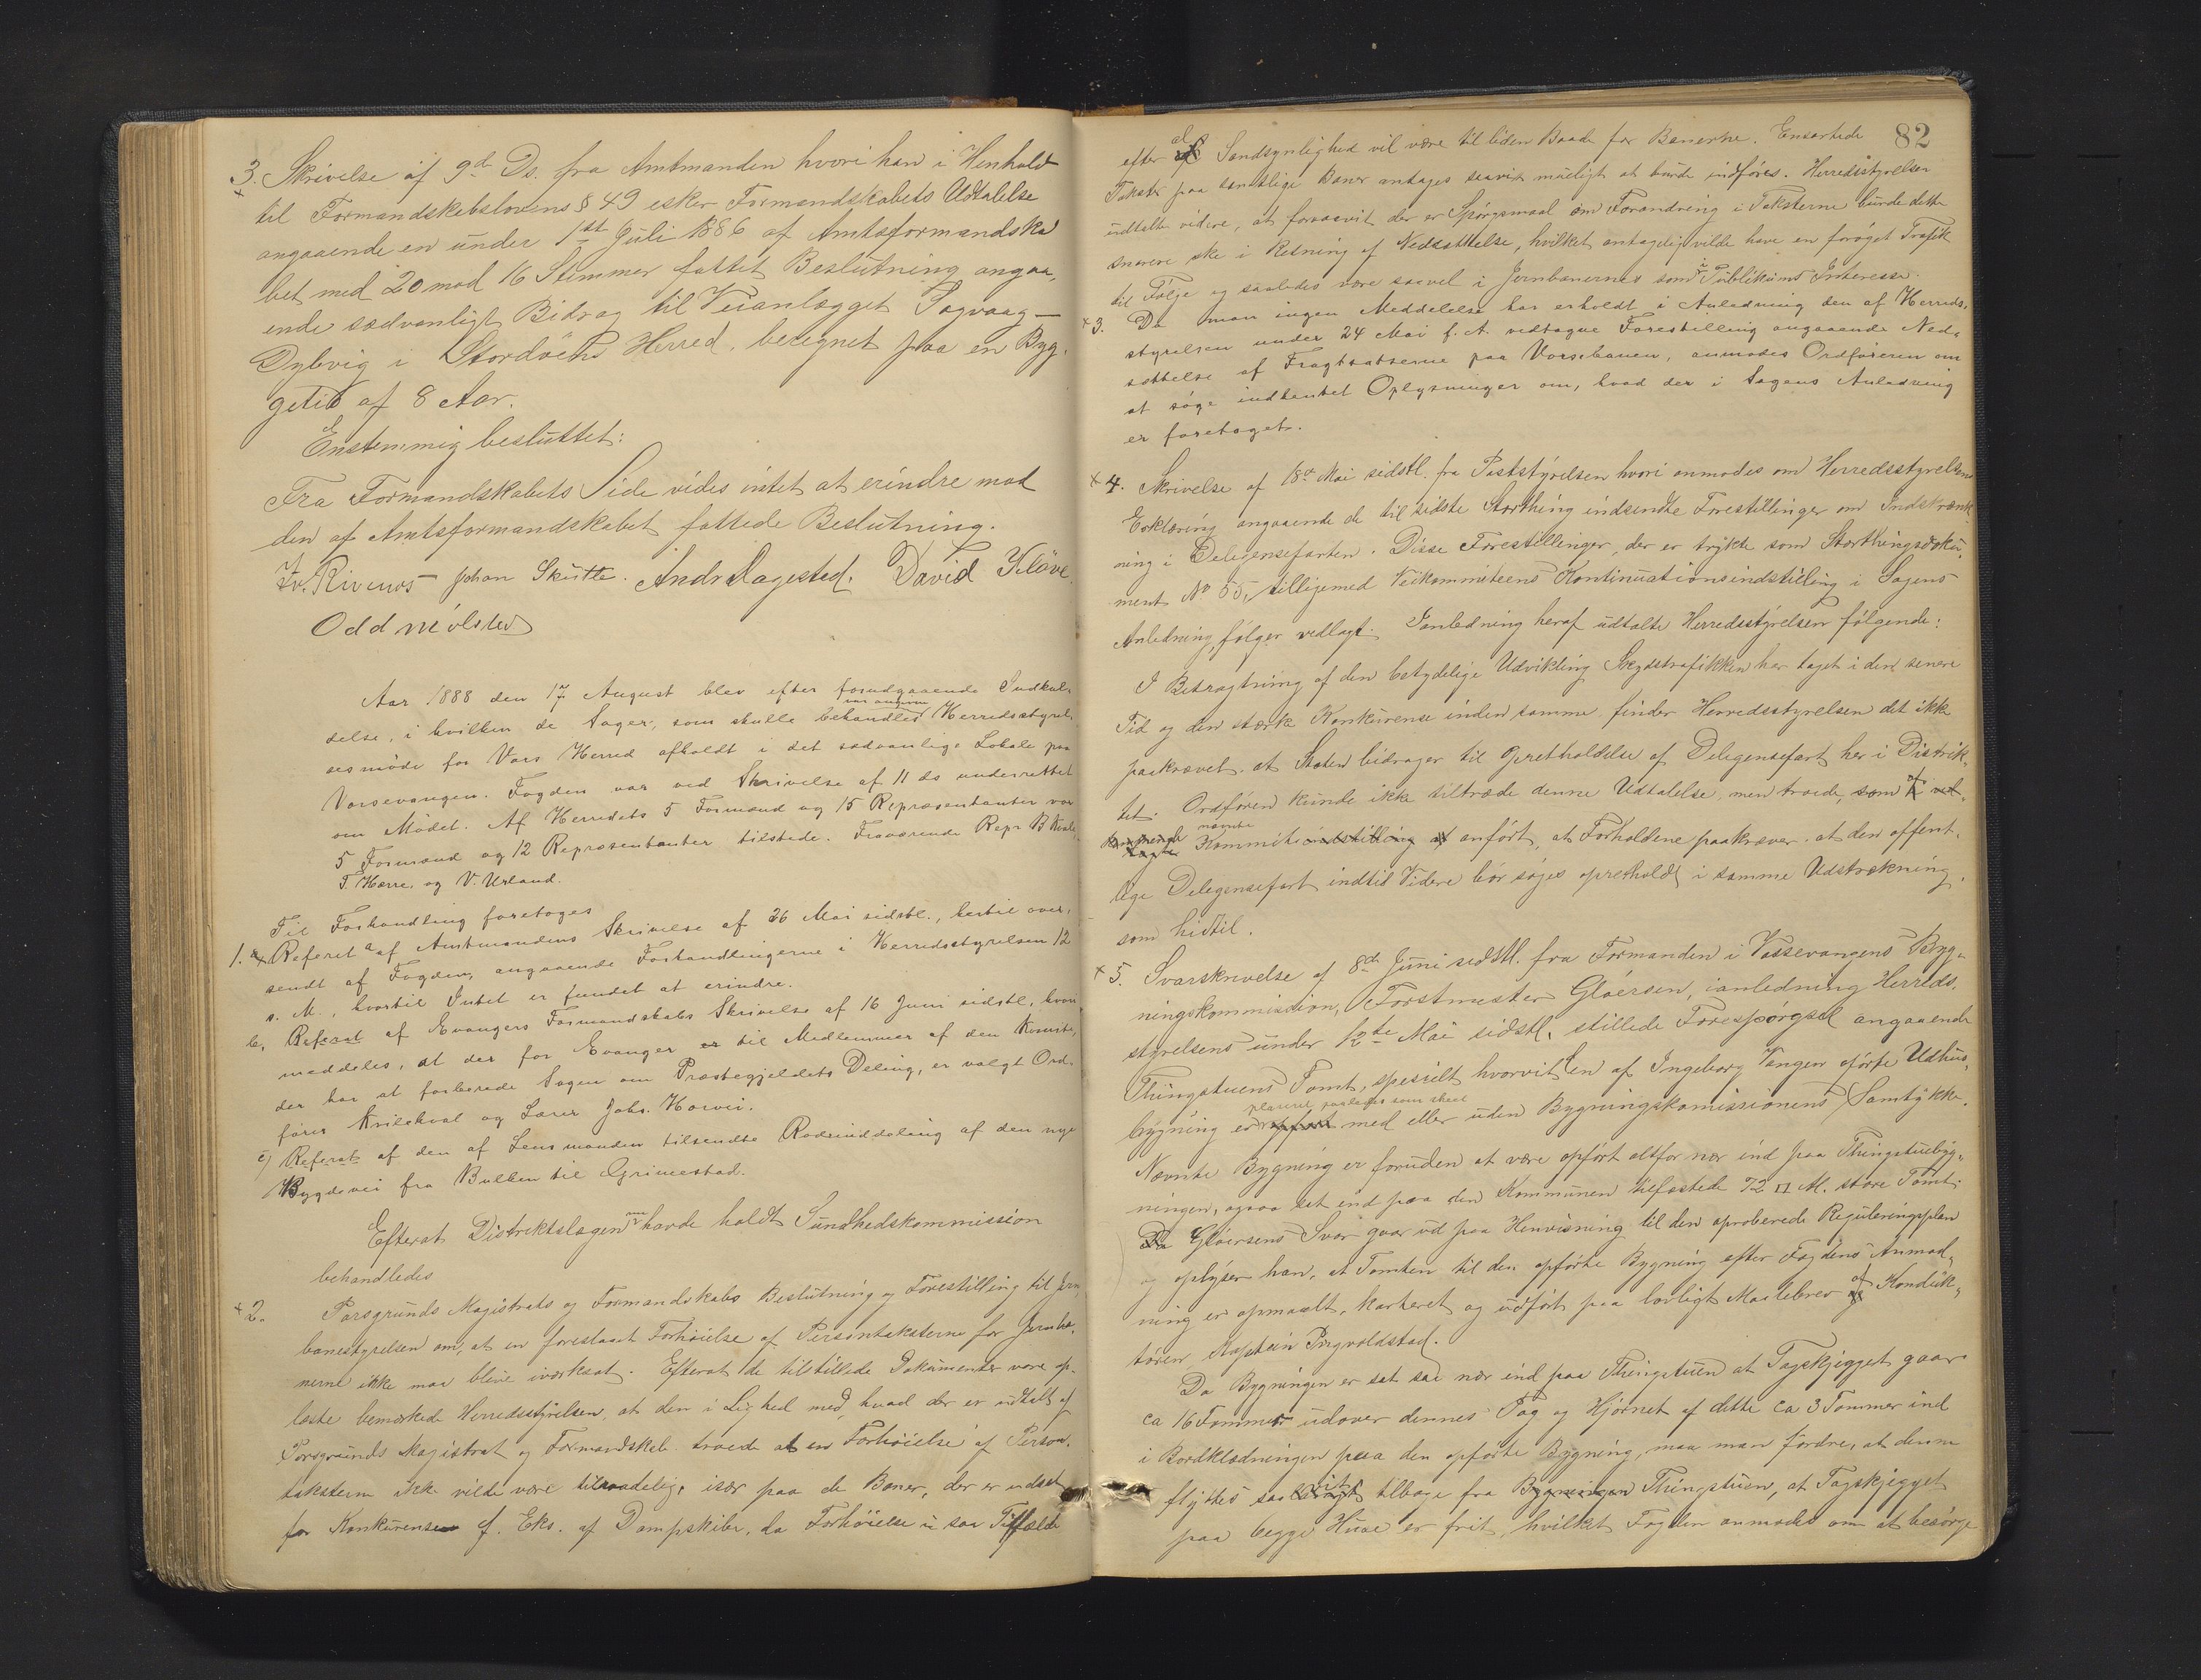 3. Skrivelse af 9d Ds. fra Amtmanden hvori han i Henhold
til Formandskabslovens § 49 esker Formandskabets Udtalelse
angaaende en under 1ste Juli 1886 af Amtsformandska
bet med 20 mod 16 Stemmer fattet Beslutning angaa,
ende sædvanligt Bidrag til Veianlægget Sagvaag—
Dybvig i Stordöens Herred, beregnet paa en Byg,
getid af 8 Aar.
Enstemmig besluttet:
Fra Formandskabets Side vides intet at erindre mod
den af Amtsformandskabet fattede Beslutning.
Iv. Rivenes Johan Skutle. Andr Dagestad. David Kløve.
Odd Mølster
Aar 1888 den 17 August blev efter forudgaaende Indkal,
delse, i hvilken de Sager, som skulle behandles var angivne Herredsstyrel,
sesmöde for Vors Herred afholdt i det sædvanlige Lokale paa
Vorsevangen. Fogden var ved Skrivelse af 11 ds underrettet
om Mödet. Af Herredets 5 Formænd og 15 Repræsentanter var
5 Formænd og 12 Repræsentanter tilstede. Fraværende Repr B
T. Hærre, og V. Urland.
Til Forhandling foretoges
1. a Referet af Amtmandens Skrivelse af 26 Mai sidstl., hertil over,
sendt af Fogden, angaaende Forhandlingerne i Herredsstyrelsen 12
s. M., hvortil Intet er fundet at erindre.
b, Referat af Evangers Formandskabs Skrivelse af 16 Juni sidstl, hvori
meddeles, at der for Evanger er til Medlemmer af den Komite,
der har at forberede Sagen om Præstegjeldets Deling, er valgt Ord,
förer Kvilekval og Lærer Johs. Horvei.
c) Referat af den af Lensmanden tilsendte Rodeinddeling af den nye
Bygdevei fra Bulken til Grimestad.
Efterat Distriktslægen havde holdt Sundhedskommission
behandledes
2. Porsgrunds Magistrats og Formandskabs Beslutning og Forestilling til Jern
banestyrelsen om, at en foreslaaet Forhöielse af Persontaksterne for Jernba,
nerne ikke maa blive iværksat. Efterat de tilstillede Dokumenter vare op,
læste bemærkede Herredsstyrelsen, at den i Lighed med, hvad der er udtalt af
Porsgrunds Magistrat og Formandskab troede at en Forhöielse af Person,
taksterne ikke vilde være tilraadelig, især paa de Baner, der er udsat
for Konkurense f. Eks. af Dampskibe, da Forhöielse i saa Tilfælde
82
efter al Sandsynlighed vil være til liden Baade for Banerne. Ensartede
Takster paa samtlige Baner antages saavidt muligt at burde indföres. Herredsstyrelsen
udtalte videre, at forsaavit der er Spörgsmaal om Forandring i Taksterne burde dette
snarere ske i Retning af Nedsættelse, hvilket antagelig vilde have en foröget Trafik
til Fölge og saaledes være saavel i Jernbanernes som i Publikums Interesse.
3. Da man ingen Meddelelse har erholdt i Anledning den af Herreds,
styrelsen under 24 Mai f. A. vedtagne Forestilling angaaende Ned,
sættelse af Fragtsatserne paa Vorsebanen, anmodes Ordföreren om
at söge indhentet Oplysninger om, hvad der i Sagens Anledning
er foretaget.
4. Skrivelse af 18de Mai sidstl. fra Poststyrelsen hvori anmodes om Herredsstyrelsens
Erklæring angaaende de til sidste Storthing indsendte Forestillinger om Indskrænk,
ning i Deligensefarten. Disse Forestillinger, der er trykte som Storthingsdoku,
ment No 55, tilligemed Veikommiteens Kontinuationsindstilling i Sagens
Anledning, fölger vedlagt. Ianledning heraf udtalte Herredsstyrelsen fölgende:
I Betragtning af den betydelige Udvikling Skydstrafikken har taget i den senere
Tid og den stærke Konkurense inden samme finder Herredsstyrelsen det ikke
paakrævet, at Staten bidrager til Opretholdelse af Deligensefart her i Distrik,
tet. Ordføren kunde ikke tiltræde denne Udtalelse, men troede, som i
nævnte Kommiteindstilling anfört, at Forholdene paakræver, at den offent,
lige Deligensefart indtil Videre bör söges opretholdt i samme Udstrækning,
som hidtil.
5. Svarskrivelse af 8de Juni sidstl. fra Formanden i Vossevangens Byg,
ningskommission, Forstmester Gløersen, ianledning Herreds,
styrelsens under 12te Mai sidstl. stillede Forespörgsel angaaende
Thingstuens Tomt, spesielt hvorvidt en af Ingeborg Vangen opförte Udhus,
bygning er opfört placeret paaleges som skeet med eller uden Bygningskomissionens Samtykke.
Nævnte Bygning er foruden at være opfört altfor nær ind paa Thingstuebyg,
ningen, ogsaa sat ind paa den Kommunen tilfæstede 72 □ Al. store Tomt.
Da Gløersens Svar gaar ud paa Henvisning til den aproberede Reguleringsplan
og oplyser han, at Tomten til den opförte Bygning efter Fogdens Anmod,
ning er opmaalt, karteret og udfört paa lovligt Maalebrev af Konduk,
tören, Kaptein Yngvoldstad.
Da Bygningen er sat saa nær ind paa Thingstuen at Tagskjegget gaar
ca 16 Tommer udover dennes Tag og Hjörnet af dette ca 3 Tommer ind
i Bordklædningen paa den opförte Bygning, maa man fordre, at denne
flyttes saa vidt tilbage fra Bygningen Thingstuen, at Tagskjegget
paa begge Huse er frit, hvilket Fogden anmodes om at besörge